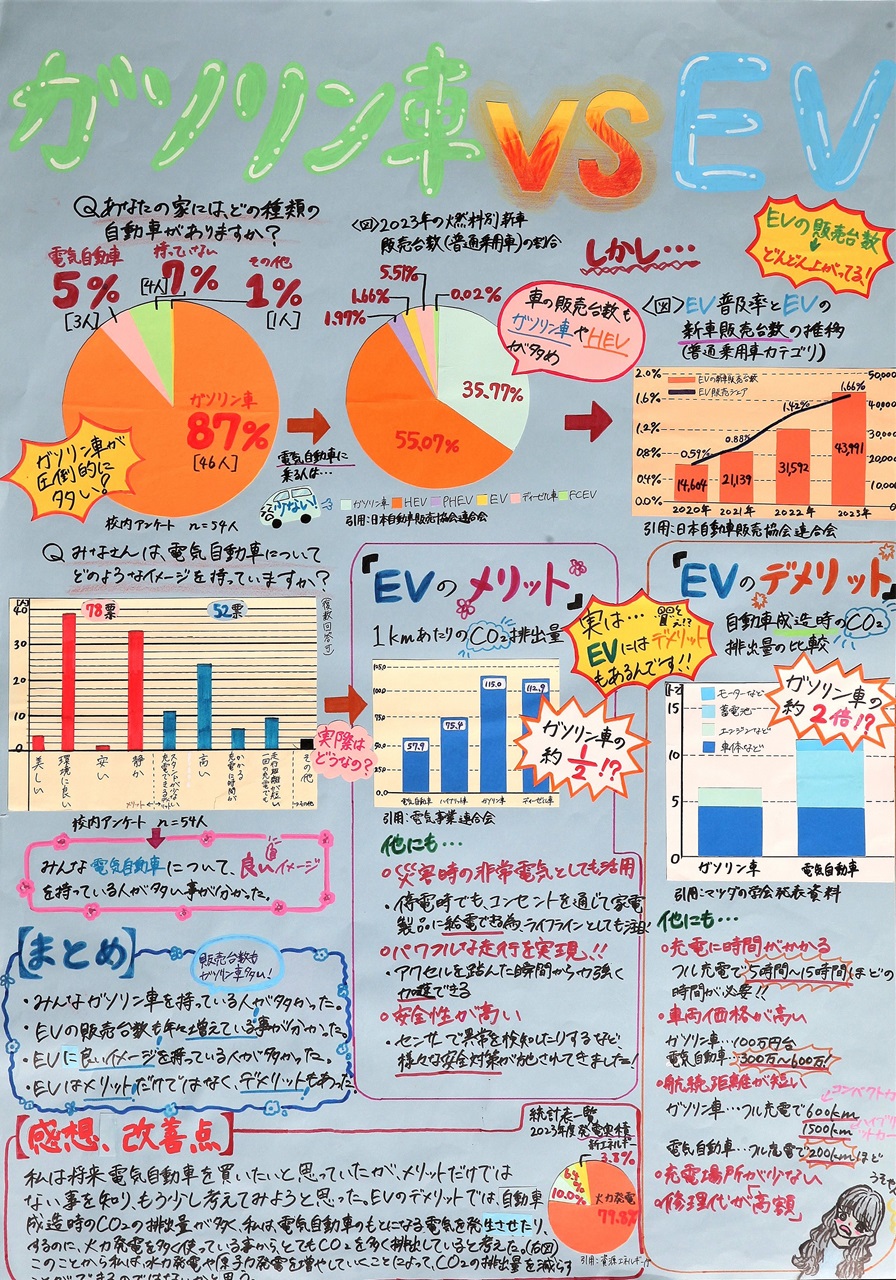 ガソリン車 VS EV
Qあなたの家には、どの種類の
自動車がありますか?
電気自動車
5%
[3人]
持っていない
7%
[4人]
その他
1%
[1人]
ガソリン車
87%
[46人]
ガソリン車が
圧倒的に
多い!
校内アンケート n=54人
<図>2023年の燃料別新車
販売台数(普通乗用車)の割合
5.51%
1.66%
1.97%
0.02%
35.77%
55.07%
電気自動車に
乗る人は…
少ない!
ガソリン車 HEV PHEV EV ディーゼル車 FCEV
引用:日本自動車販売協会連合会
車の販売台数も
ガソリン車やHEV
が多め
しかし…
EVの販売台数
どんどん上がってる!
<図>EV普及率とEVの
新車販売台数の推移
(普通乗用車カテゴリ)
2.0%
1.6%
1.2%
0.8%
0.4%
0.0%
EVの新車販売台数
EV販売シェア
0.59%
0.88%
1.42%
1.66%
14,604
21,139
31,592
43,991
50,000
40,000
30,000
20,000
10,000
2020年 2021年 2022年 2023年
引用:日本自動車販売協会連合会
Qみなさんは、電気自動車について
どのようなイメージを持っていますか?
(複数回答可)
[人]
40
30
20
10
0
78票
52票
美しい
環境に良い
安い
静か
高い
充電に時間が
かかる
その他
メリット
校内アンケート n=54人
実際は
どうなの?
みんな電気自動車について、良いイメージ
を持っている人が多い事が分かった。
『EVのメリット』
1kmあたりのCO₂排出量
125.0
100.0
75.0
50.0
25.0
0.0
57.9
75.4
115.0
112.9
電気自動車 ハイブリッド車 ガソリン車 ディーゼル車
ガソリン車の
約1/2!?
引用:電気事業連合会
他にも…
○災害時の非常電気としても活用
・停電時でも、コンセントを通じて家電
製品に給電できる為、ライフラインとしても注目!
○パワフルな走行を実現!!
・アクセルを踏んだ瞬間から力強く
加速できる
○安全性が高い
・センサーで異常を検知したりするなど、
様々な安全対策が施されてきました!
実は…
EVにはデメリット
もあるんです!!
『EVのデメリット』
自動車成造時のCO₂
排出量の比較
15
10
5
0
モーターなど
蓄電池
エンジンなど
車体など
ガソリン車の
約2倍!?
ガソリン車 電気自動車
引用:マツダの学会発表資料
他にも…
○充電に時間がかかる
フル充電で5時間〜15時間ほどの
時間が必要!!
○車両価格が高い
ガソリン車…100万円台
電気自動車…300万〜600万!
○航続距離が短い
ガソリン車…フル充電で600km
1500km
電気自動車…フル充電で200kmほど
○充電場所が少ない
○修理代が高額
【まとめ】
販売台数も
ガソリン車多い!
・みんなガソリン車を持っている人が多かった。
・EVの販売台数も年々増えている事が分かった。
・EVに良いイメージを持っている人が多かった。
・EVはメリットだけではなく、デメリットもあった。
【感想、改善点】
私は将来電気自動車を買いたいと思っていたが、メリットだけでは
ない事を知り、もう少し考えてみようと思った。EVのデメリットでは、自動車
成造時のCO₂の排出量が多く、私は、電気自動車のもとになる電気を発生させたり、
するのに、火力発電を多く使っている事から、とてもCO₂を多く排出していると考えた。(右図)
このことから私は、水力発電や原子力発電を増やしていくことによって、CO₂の排出量を減らす
ことができるのではないかと思う。
統計表一覧
2023年度発電実積
新エネルギー
3.8%
6.4%
10.0%
火力発電
79.8%